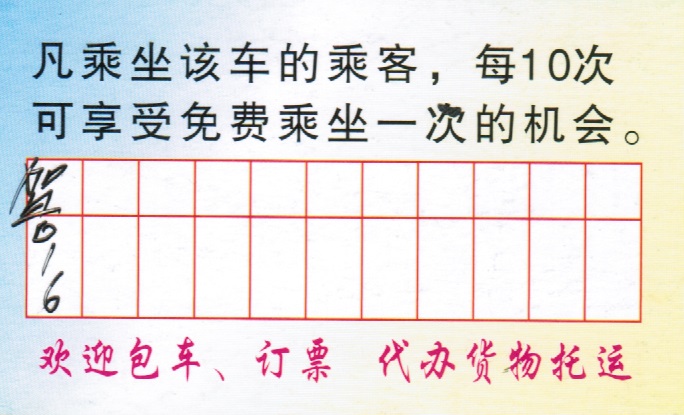 凡乘坐该车的乘客，每10次
可享受免费乘坐一次的机会。
6
欢迎包车、订票 代办货物托运